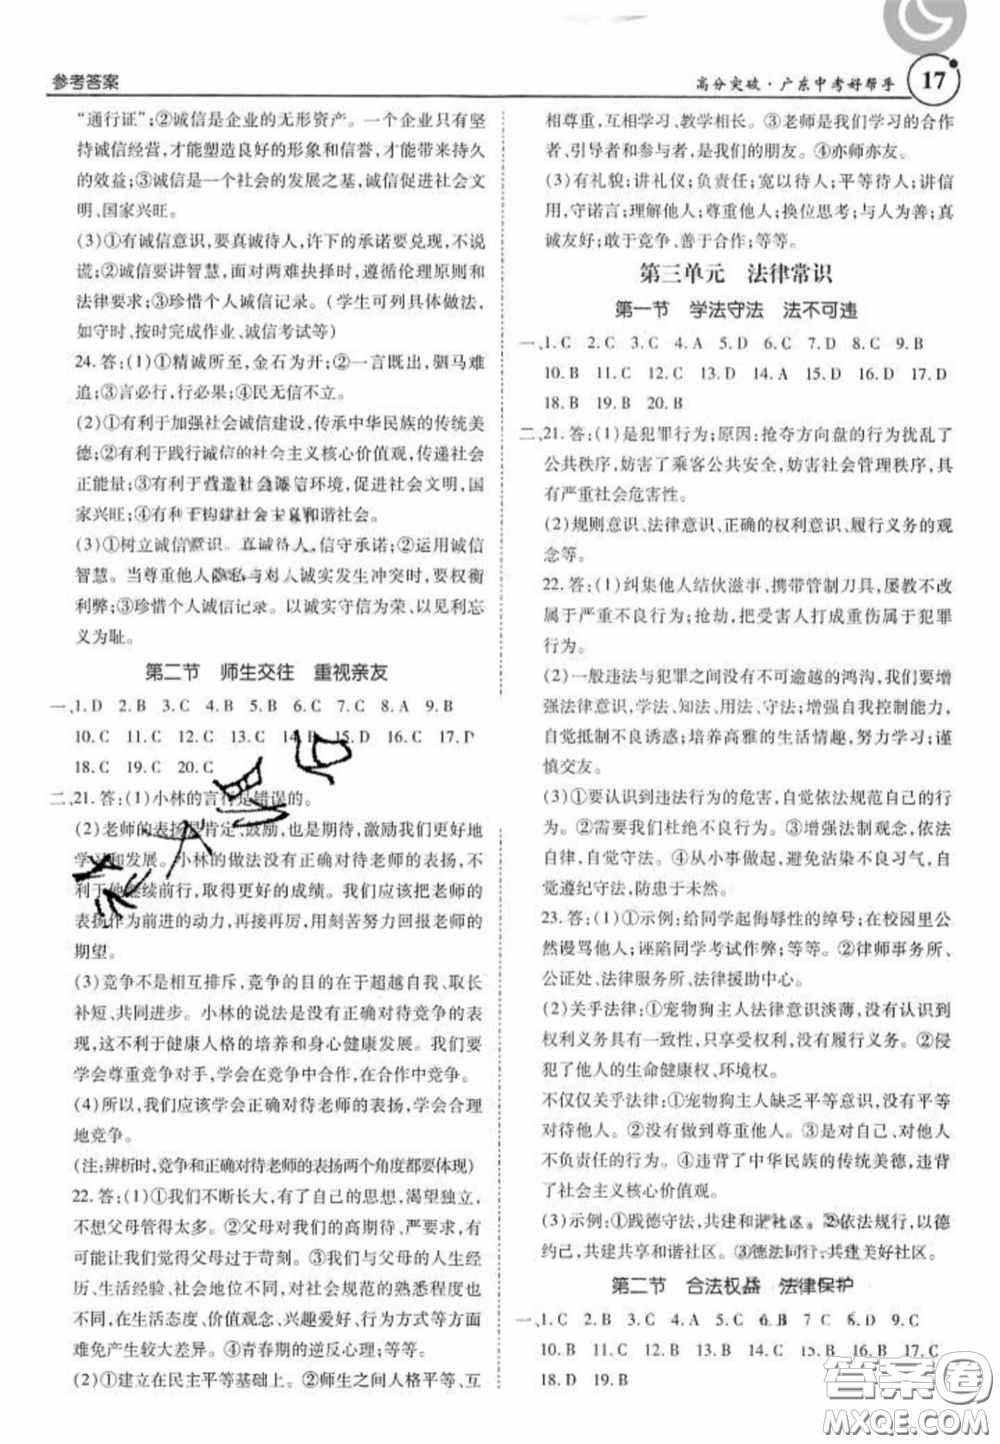 参考答案
高分突破·广东中考好帮手 17
“通行证”;②诚信是企业的无形资产。一个企业只有坚
持诚信经营,才能塑造良好的形象和信誉,才能带来持久
的效益;③诚信是一个社会的发展之基,诚信促进社会文
明、国家兴旺。
(3)①有诚信意识,要真诚待人,许下的承诺要兑现,不说
谎;②诚信要讲智慧,面对两难抉择时,遵循伦理原则和
法律要求;③珍惜个人诚信记录。(学生可列具体做法,
如守时、按时完成作业、诚信考试等)
24.答:(1)①精诚所至,金石为开;②一言既出,驷马难
追;③言必行,行必果;④民无信不立。
(2)①有利于加强社会诚信建设,传承中华民族的传统美
德;②有利于践行诚信的社会主义核心价值观,传递社会
正能量;③有利于营造社会诚信环境,促进社会文明,国
家兴旺;④有利于构建社会主义和谐社会。
(3)①树立诚信意识。真诚待人,信守承诺;②运用诚信
智慧。当尊重他人隐私与对人诚实发生冲突时,要权衡
利弊;③珍惜个人诚信记录。以诚实守信为荣、以见利忘
义为耻。
第二节 师生交往 重视亲友
一、1.D 2.B 3.C 4.A 5.B 6.C 7.C 8.A 9.B
10.C 11.C 12.C 13.C 14.B 15.D 16.C 17.D
18.C 19.C 20.C
二、21.答:(1)小林的言行是错误的。
(2)老师的表扬是肯定、鼓励,也是期待,激励我们更好地
学习和发展。小林的做法没有正确对待老师的表扬,不
利于他继续前行,取得更好的成绩。我们应该把老师的
表扬作为前进的动力,再接再厉,用刻苦努力回报老师的
期望。
(3)竞争不是相互排斥,竞争的目的在于超越自我、取长
补短、共同进步。小林的说法是没有正确对待竞争的表
现,这不利于健康人格的培养和身心健康发展。我们要
学会尊重竞争对手,学会在竞争中合作,在合作中竞争。
(4)所以,我们应该学会正确对待老师的表扬,学会合理
地竞争。
(注:辨析时,竞争和正确对待老师的表扬两个角度都要体现)
22.答:(1)①我们不断长大,有了自己的思想,渴望独立,
不想父母管得太多。②父母对我们的高期待、严要求,有
可能让我们觉得父母过于苛刻。③我们与父母的人生经
历、生活经验、社会地位不同,对社会规范的熟悉程度不
同,在生活态度、价值观念、兴趣爱好、行为方式等方面难
免产生较大差异。④青春期的逆反心理;等等。
(2)①建立在民主平等基础上。②师生之间人格平等、互
相尊重、互相学习、教学相长。③老师是我们学习的合作
者、引导者和参与者,是我们的朋友。④亦师亦友。
(3)有礼貌;讲礼仪;负责任;宽以待人;平等待人;讲信
用,守诺言;理解他人;尊重他人;换位思考;与人为善;真
诚友好;敢于竞争、善于合作;等等。
第三单元 法律常识
第一节 学法守法 法不可违
一、1.C 2.C 3.C 4.A 5.D 6.D 7.D 8.C 9.B
10.B 11.C 12.C 13.D 14.A 15.D 16.D 17.D
18.B 19.B 20.B
二、21.答:(1)是犯罪行为;原因:抢夺方向盘的行为扰乱了
公共秩序,妨害了乘客公共安全,妨害社会管理秩序,具
有严重社会危害性。
(2)规则意识、法律意识、正确的权利意识、履行义务的观
念等。
22.答:(1)纠集他人结伙滋事,携带管制刀具,屡教不改
属于严重不良行为;抢劫,把受害人打成重伤属于犯罪
行为。
(2)一般违法与犯罪之间没有不可逾越的鸿沟,我们要加
强法律意识,学法、知法、用法、守法;增强自我控制能力,
自觉抵制不良诱惑;培养高雅的生活情趣,努力学习;谨
慎交友。
(3)①要认识到违法行为的危害,自觉依法规范自己的行
为。②需要我们杜绝不良行为。③增强法制观念,依法
自律,自觉守法。④从小事做起,避免沾染不良习气,自
觉遵纪守法,防患于未然。
23.答:(1)①示例:给同学起侮辱性的绰号;在校园里公
然谩骂他人;诬陷同学考试作弊;等等。②律师事务所、
公证处、法律服务所、法律援助中心。
(2)关乎法律:①宠物狗主人法律意识淡薄,没有认识到
权利义务具有一致性,只享受权利,没有履行义务。②侵
犯了他人的生命健康权、环境权。
不仅仅关乎法律:①宠物狗主人缺乏平等意识,没有平等
对待他人。②没有做到尊重他人。③是对自己、对他人
不负责任的行为。④违背了中华民族的传统美德,违背
了社会主义核心价值观。
(3)示例:①践德守法,共建和谐社区。②依法规行,以德
约己,共建共享和谐社区。③德法同行,共建美好社区。
第二节 合法权益 法律保护
一、1.C 2.B 3.C 4.C 5.C 6.B 7.B 8.C 9.C
10.B 11.C 12.B 13.B 14.C 15.B 16.B 17.C
18.D 19.B
答案圈
MXQE.COM